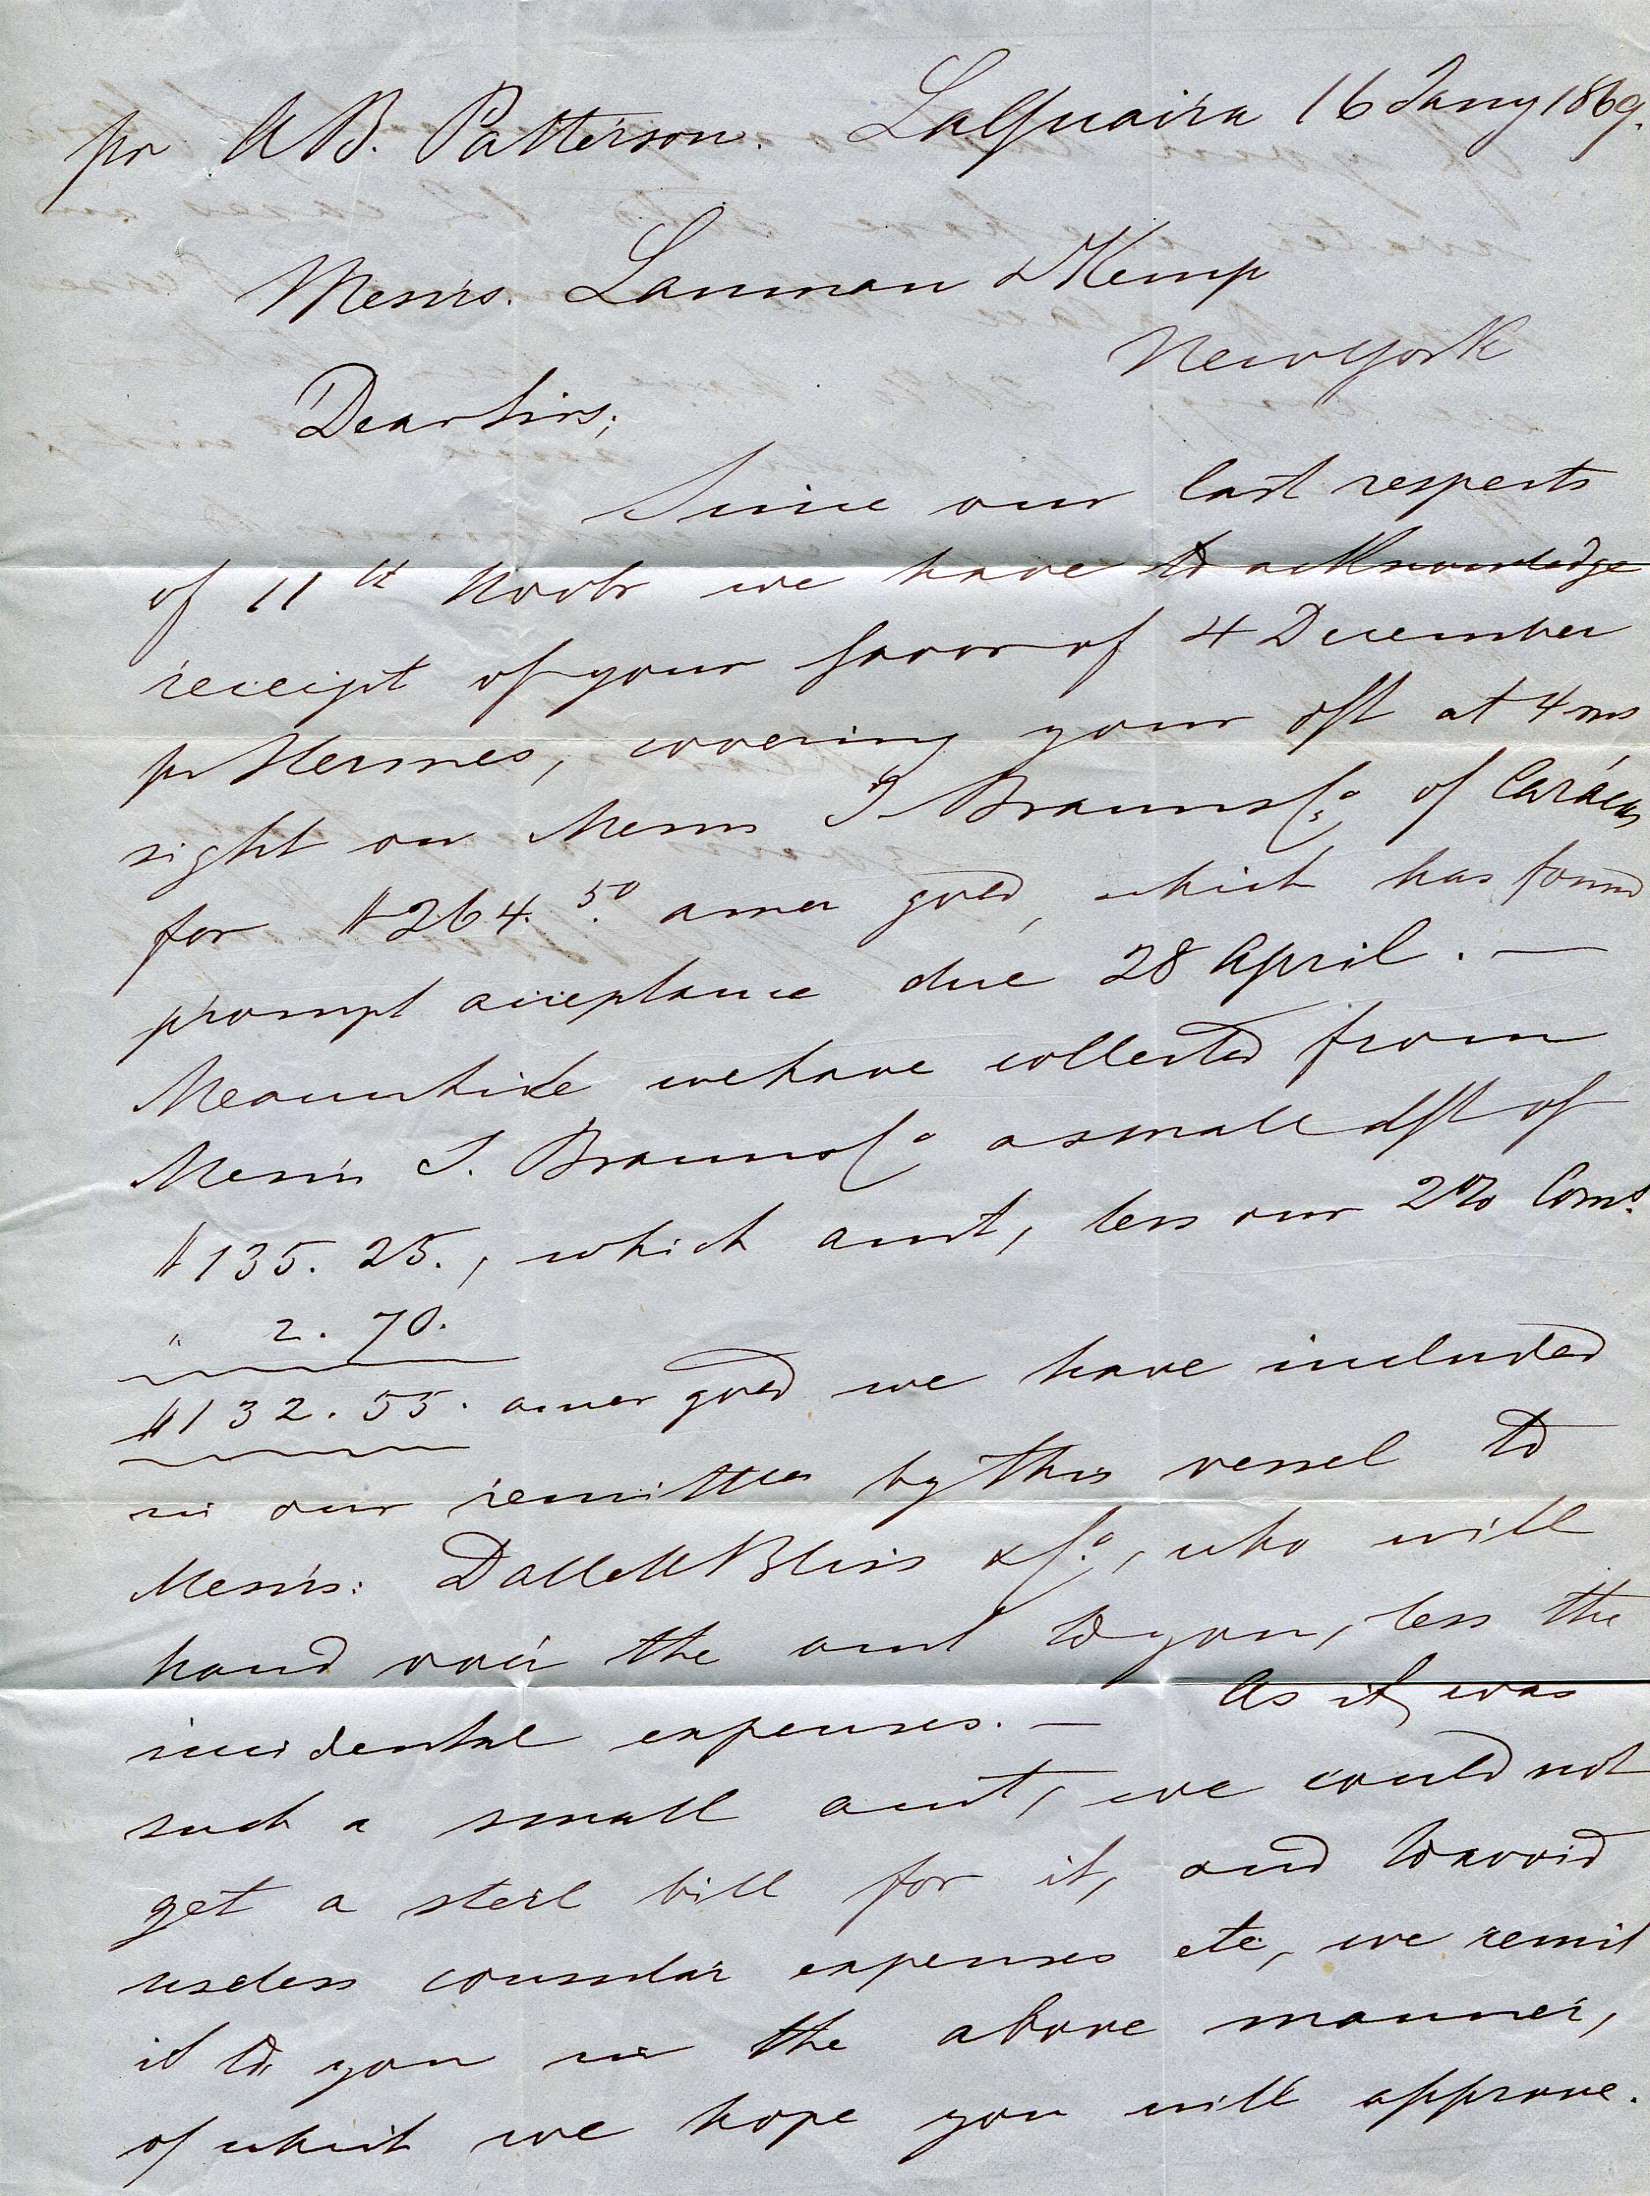 pr A B. Patterson. LaGuaira 16 Jany 1869.
Messrs. Lanman & Kemp
New York
Dear Sirs;
Since our last respects
of 11th Novbr we have to acknowledge
receipt of your favor of 4 December
pr Hermes, covering your dft at 4 ms
sight on Messrs J. Brauns & Co. of Carácas
for $264.50 amer gold, which has found
prompt acceptance due 28 April. —
Meanwhile we have collected from
Messrs J. Brauns & Co a small dft of
$135.25., which amt, less our 2% Coms.
" 2.70.
$132.55. amer gold we have included
in our remittces by this vessel to
Messrs: Dallett Bliss & Co., who will
hand over the amt to you, less the
incidental expenses. — As it was
such a small amt, we could not
get a sterl bill for it, and to avoid
useless consular expenses etc, we remit
it to you in the above manner,
of which we hope you will approve.